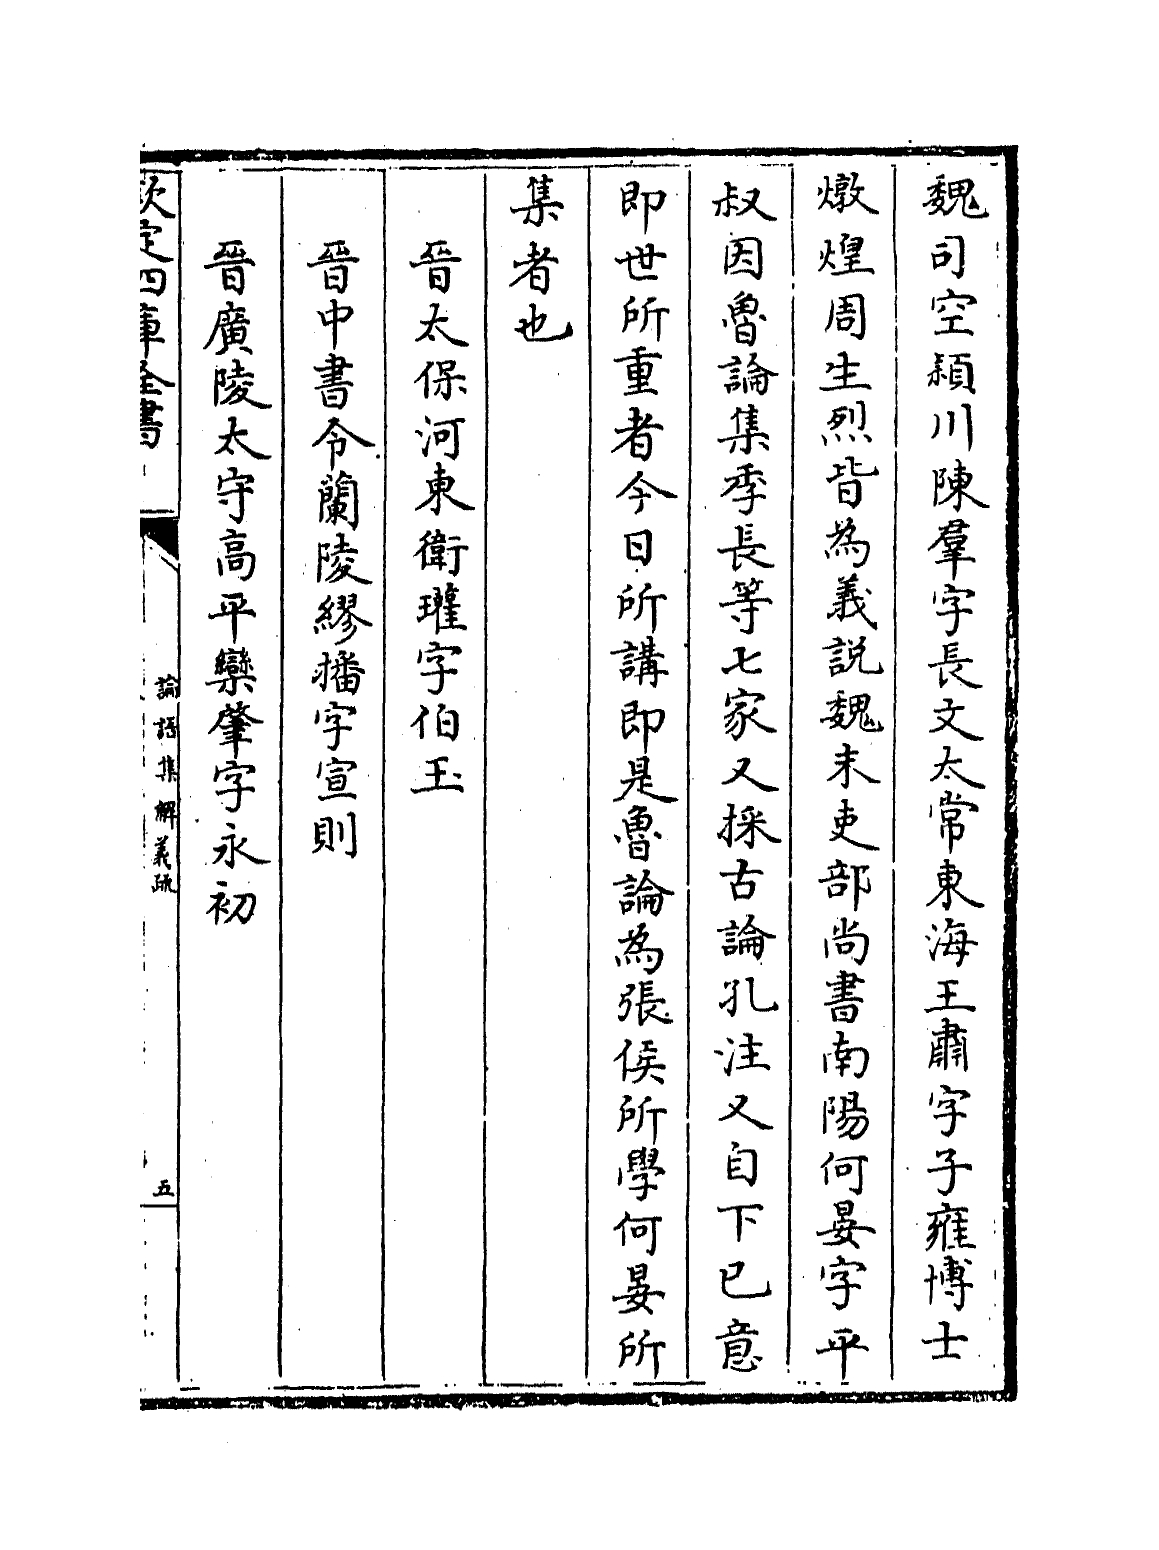 魏司空潁川陳羣字長文太常東海王肅字子雍博士
燉煌周生烈皆為義説魏末吏部尚書南陽何晏字平
叔因魯論集季長等七家又採古論孔注又自下已意
即世所重者今日所講即是魯論為張侯所學何晏所
集者也
晉太保河東衛瓘字伯玉
晉中書令蘭陵繆播字宣則
晉廣陵太守高平欒肇字永初
欽定四庫全書
論語集解義疏
五